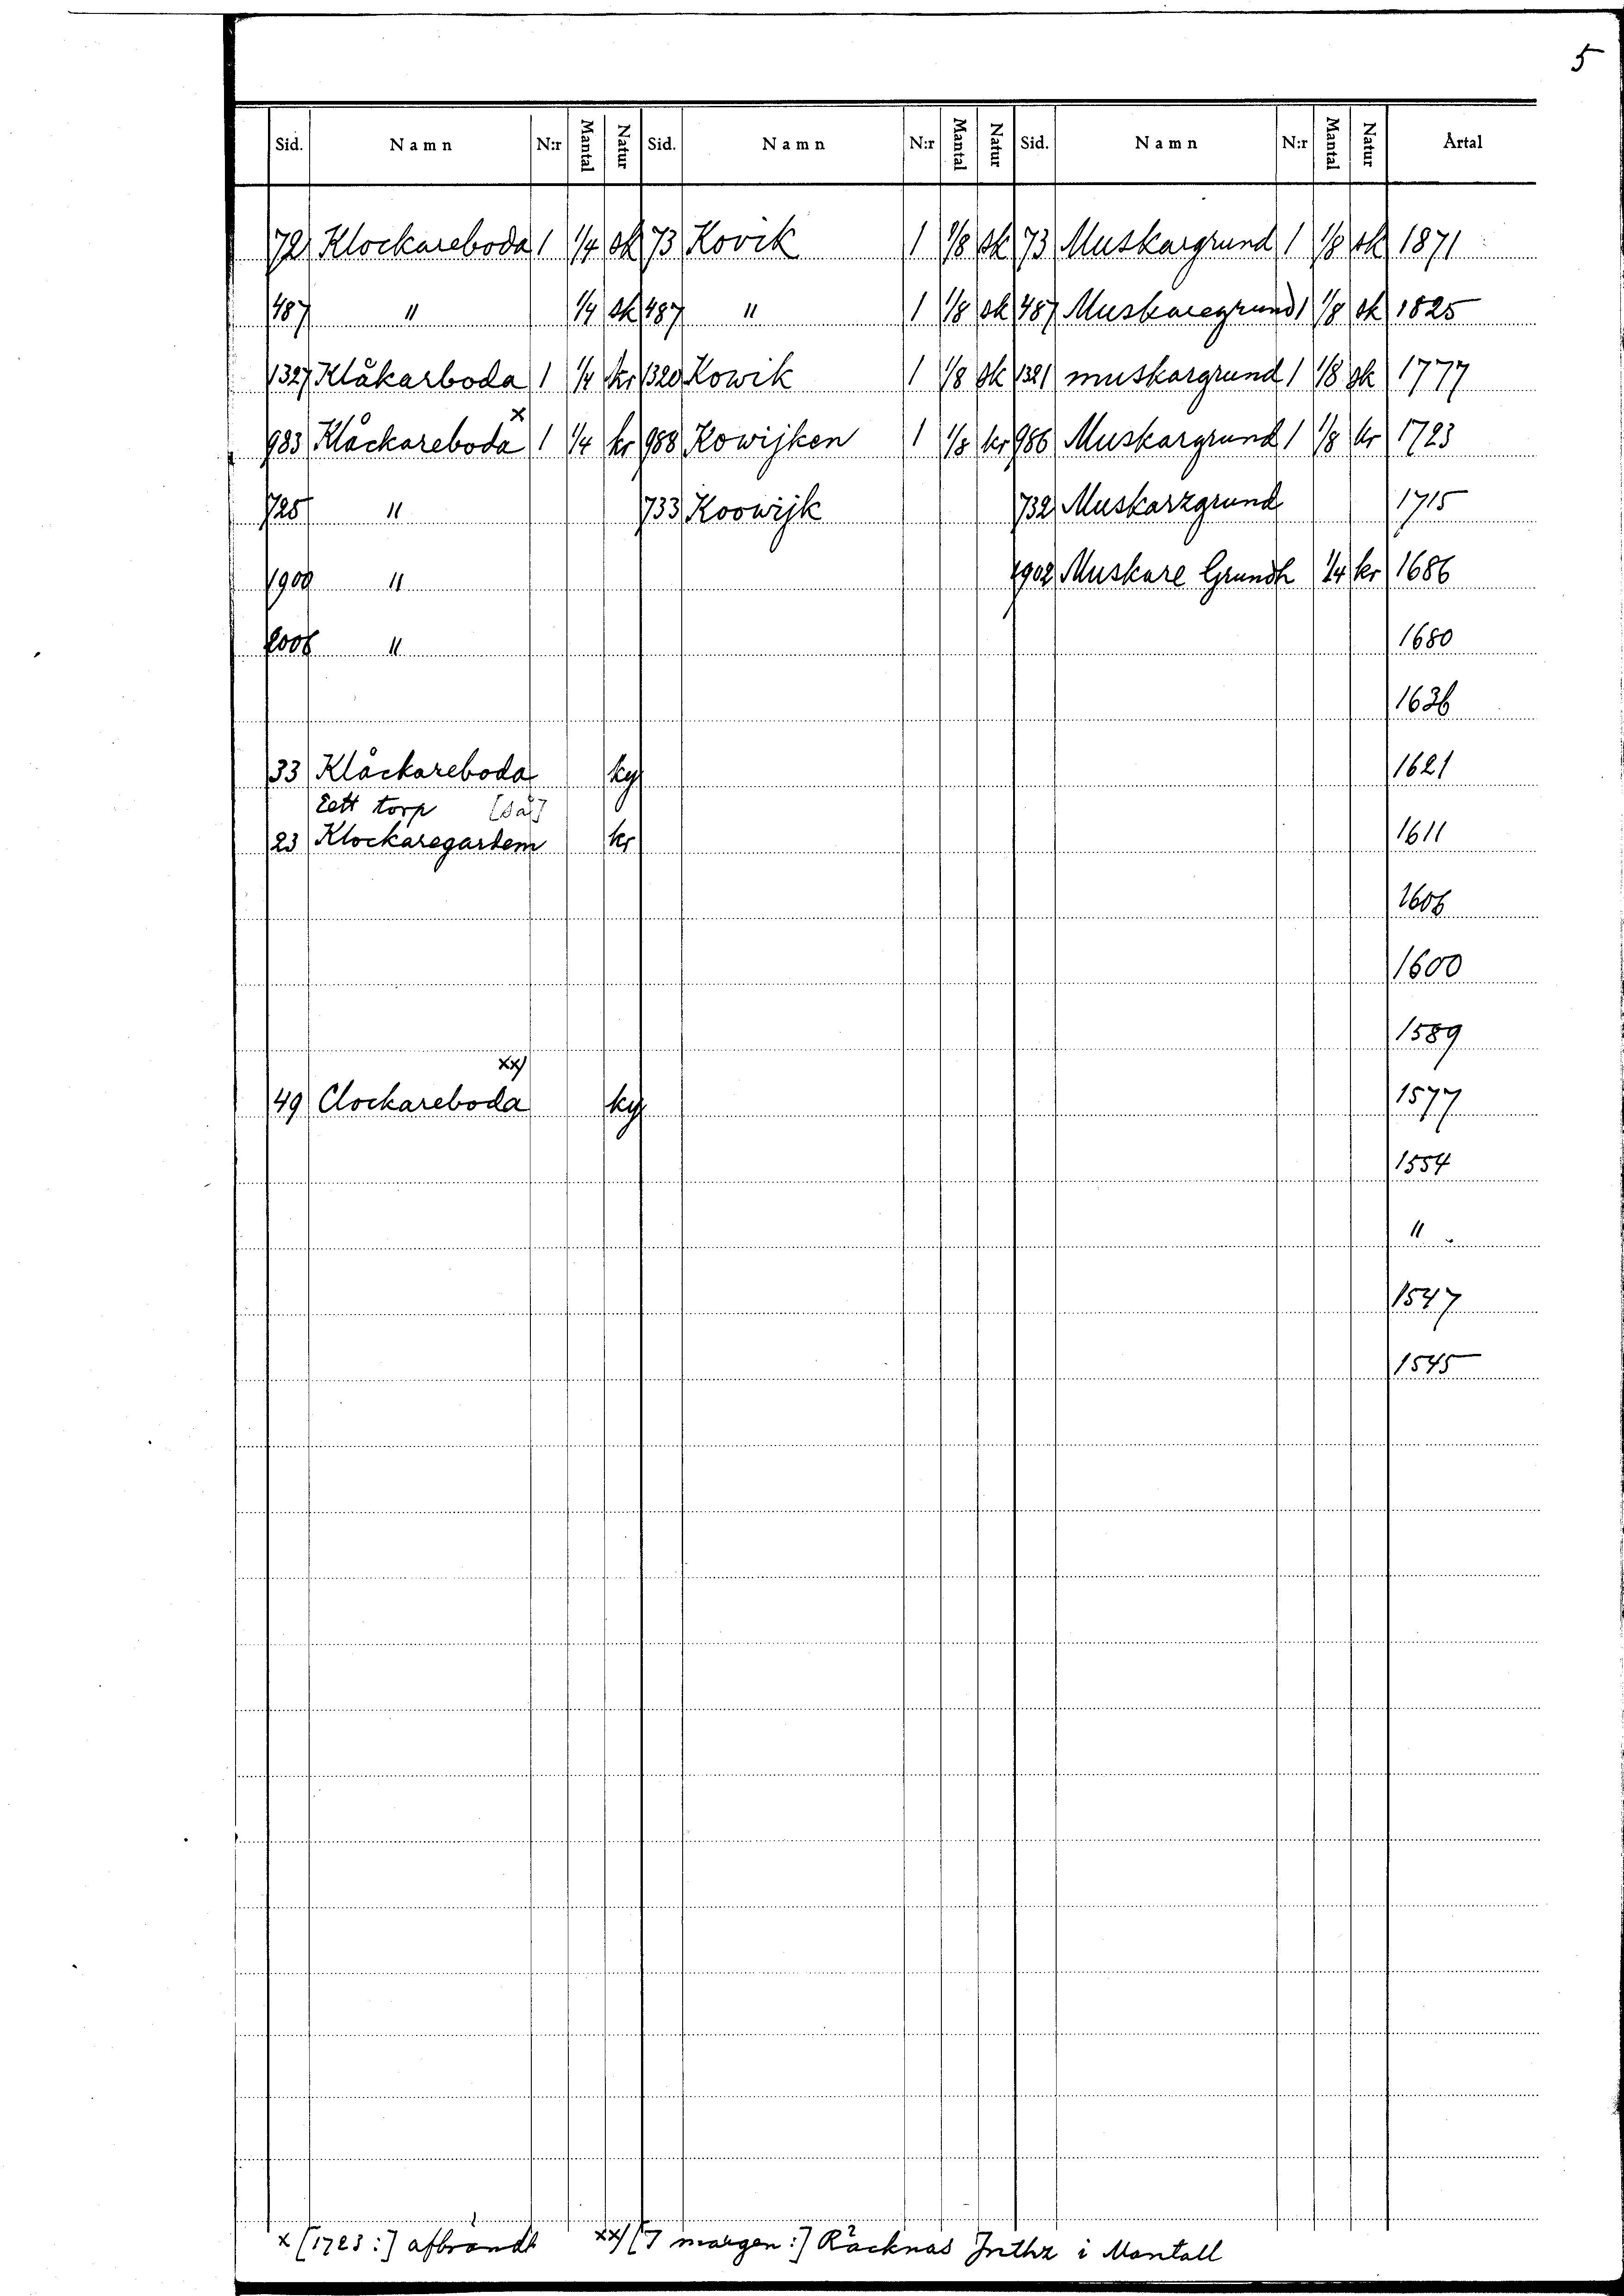 5
Sid. Namn N:r Mantal Natur Sid. Namn N:r Mantal Natur Sid. Namn N:r Mantal Natur Årtal
72 Klockareboda 1 1/4 sk 73 Kovik 1 1/8 sk 73 Muskargrund 1 1/8 sk 1871
487 " 1/4 sk 487 " 1 1/8 sk 487 Muskaregrund 1 1/8 sk 1825
1327 Klåkarboda 1 1/4 kr 1320 Kowik 1 1/8 sk 1321 muskargrund 1 1/8 sk 1777
983 Klåckareboda x 1 1/4 kr 988 Kowijken 1 1/8 kr 986 Muskargrund 1 1/8 kr 1723
725 " 733 Koowijk 732 Muskarzgrund 1715
1900 " 1902 Muskare Grundh 1/4 kr 1686
2006 " 1680
1636
33 Klåckareboda ky 1621
Eett torp [så]
23 Klockaregardem kr 1611
1606
1600
1589
xx/
49 Clockareboda ky 1577
1554
"
1547
1545
x [1723:] afbrändt xx/ [I margen:] Räcknas Inthz i Mantall